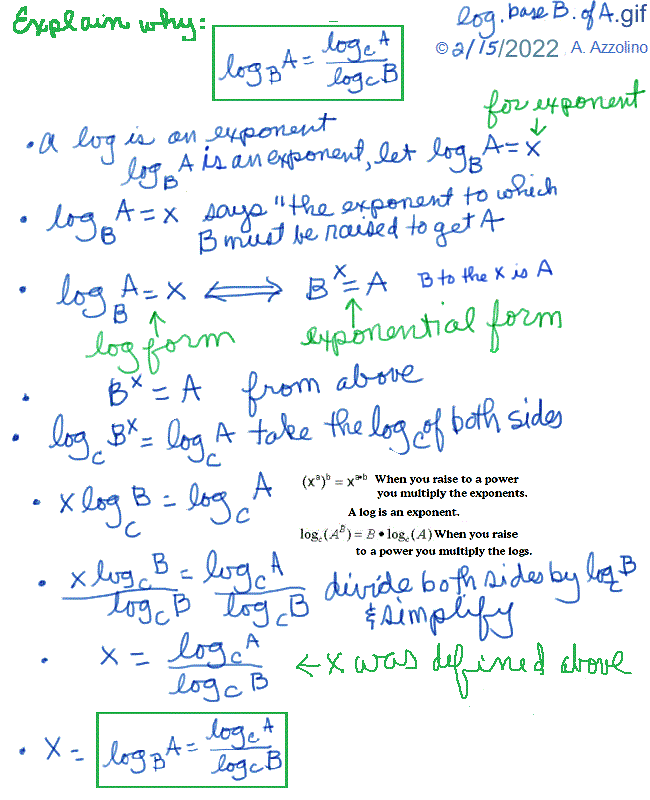 Explain why:
log.base B.of A.gif
log_B A = log_c A / log_c B
© 2/15/2022 A. Azzolino
for exponent
• a log is an exponent
log_B A is an exponent, let log_B A = x
• log_B A = x says "the exponent to which
B must be raised to get A
• log_B A = x ⟺ B^x = A B to the x is A
log form exponential form
• B^x = A from above
• log_c B^x = log_c A take the log_c of both sides
• x log_c B = log_c A
(x^a)^b = x^{a•b} When you raise to a power
you multiply the exponents.
A log is an exponent.
log_c(A^B) = B • log_c(A) When you raise
to a power you multiply the logs.
• x log_c B / log_c B = log_c A / log_c B divide both sides by log_c B
& simplify
• x = log_c A / log_c B ← x was defined above
• x = log_B A = log_c A / log_c B